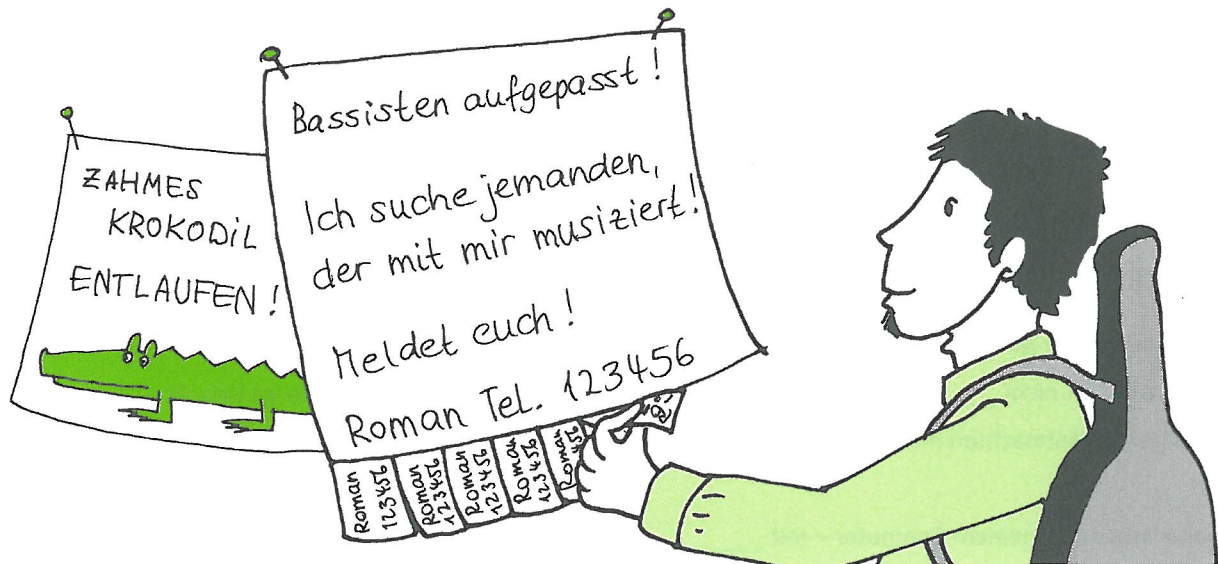 ZAHMES
KROKODiL
ENTLAUFEN!
Bassisten aufgepasst!
Ich suche jemanden,
der mit mir musiziert!
Meldet euch!
Roman Tel. 123456
Roman
123456
Roman
123456
Roman
123456
Roman
123456
Roman